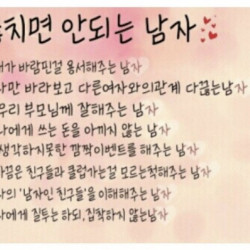 치면 안되는 남자
가 바람핀걸 용서해주는 남자
만 바라보고 다른여자와의관계 다끊는남자
우리 부모님께 잘해주는 남자
나에게 쓰는 돈을 아끼지 않는 남자
생각하지못한 깜짝이벤트를 해주는 남자
끔은 친구들과 클럽가는걸 모르는척해주는남자
자의 '남자인 친구들'을 이해해주는 남자
에게 질투는 하되, 집착하지 않는남자